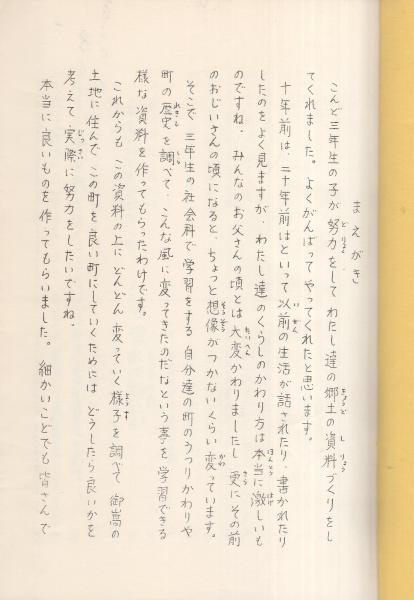 まえがき
こんど三年生の子が努力をして わたし達の郷土の資料づくりをし
てくれました。よくがんばって やってくれたと思います。
十年前は、二十年前はといって以前の生活が話されたり、書かれたり
したのをよく見ますが、わたし達のくらしのかわり方は本当に激しいも
のですね。みんなのお父さんの頃とは大変かわりましたし 更にその前
のおじいさんの頃になると、ちょっと想像がつかないくらい変っています。
そこで 三年生の社会科で学習をする 自分達の町のうつりかわりや
町の歴史を調べて、こんな風に変ってきたのだなという事を 学習できる
様な資料を作ってもらったわけです。
これからも この資料の上に どんどん 変っていく様子を調べて 御嵩の
土地に住んで この町を良い町にしていくためには どうしたら良いかを
考えて、実際に努力をしたいですね。
本当に良いものを作ってもらいました。 細かいことでも皆さんで